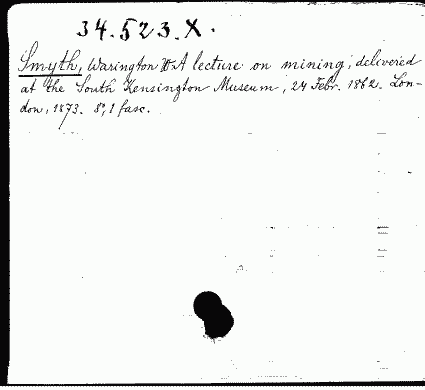 34.523.X.
Smyth, Warington W. A lecture on mining, delivered
at the South Kensington Museum, 24 Febr. 1862. Lon-
don, 1873. 8°, 1 fasc.